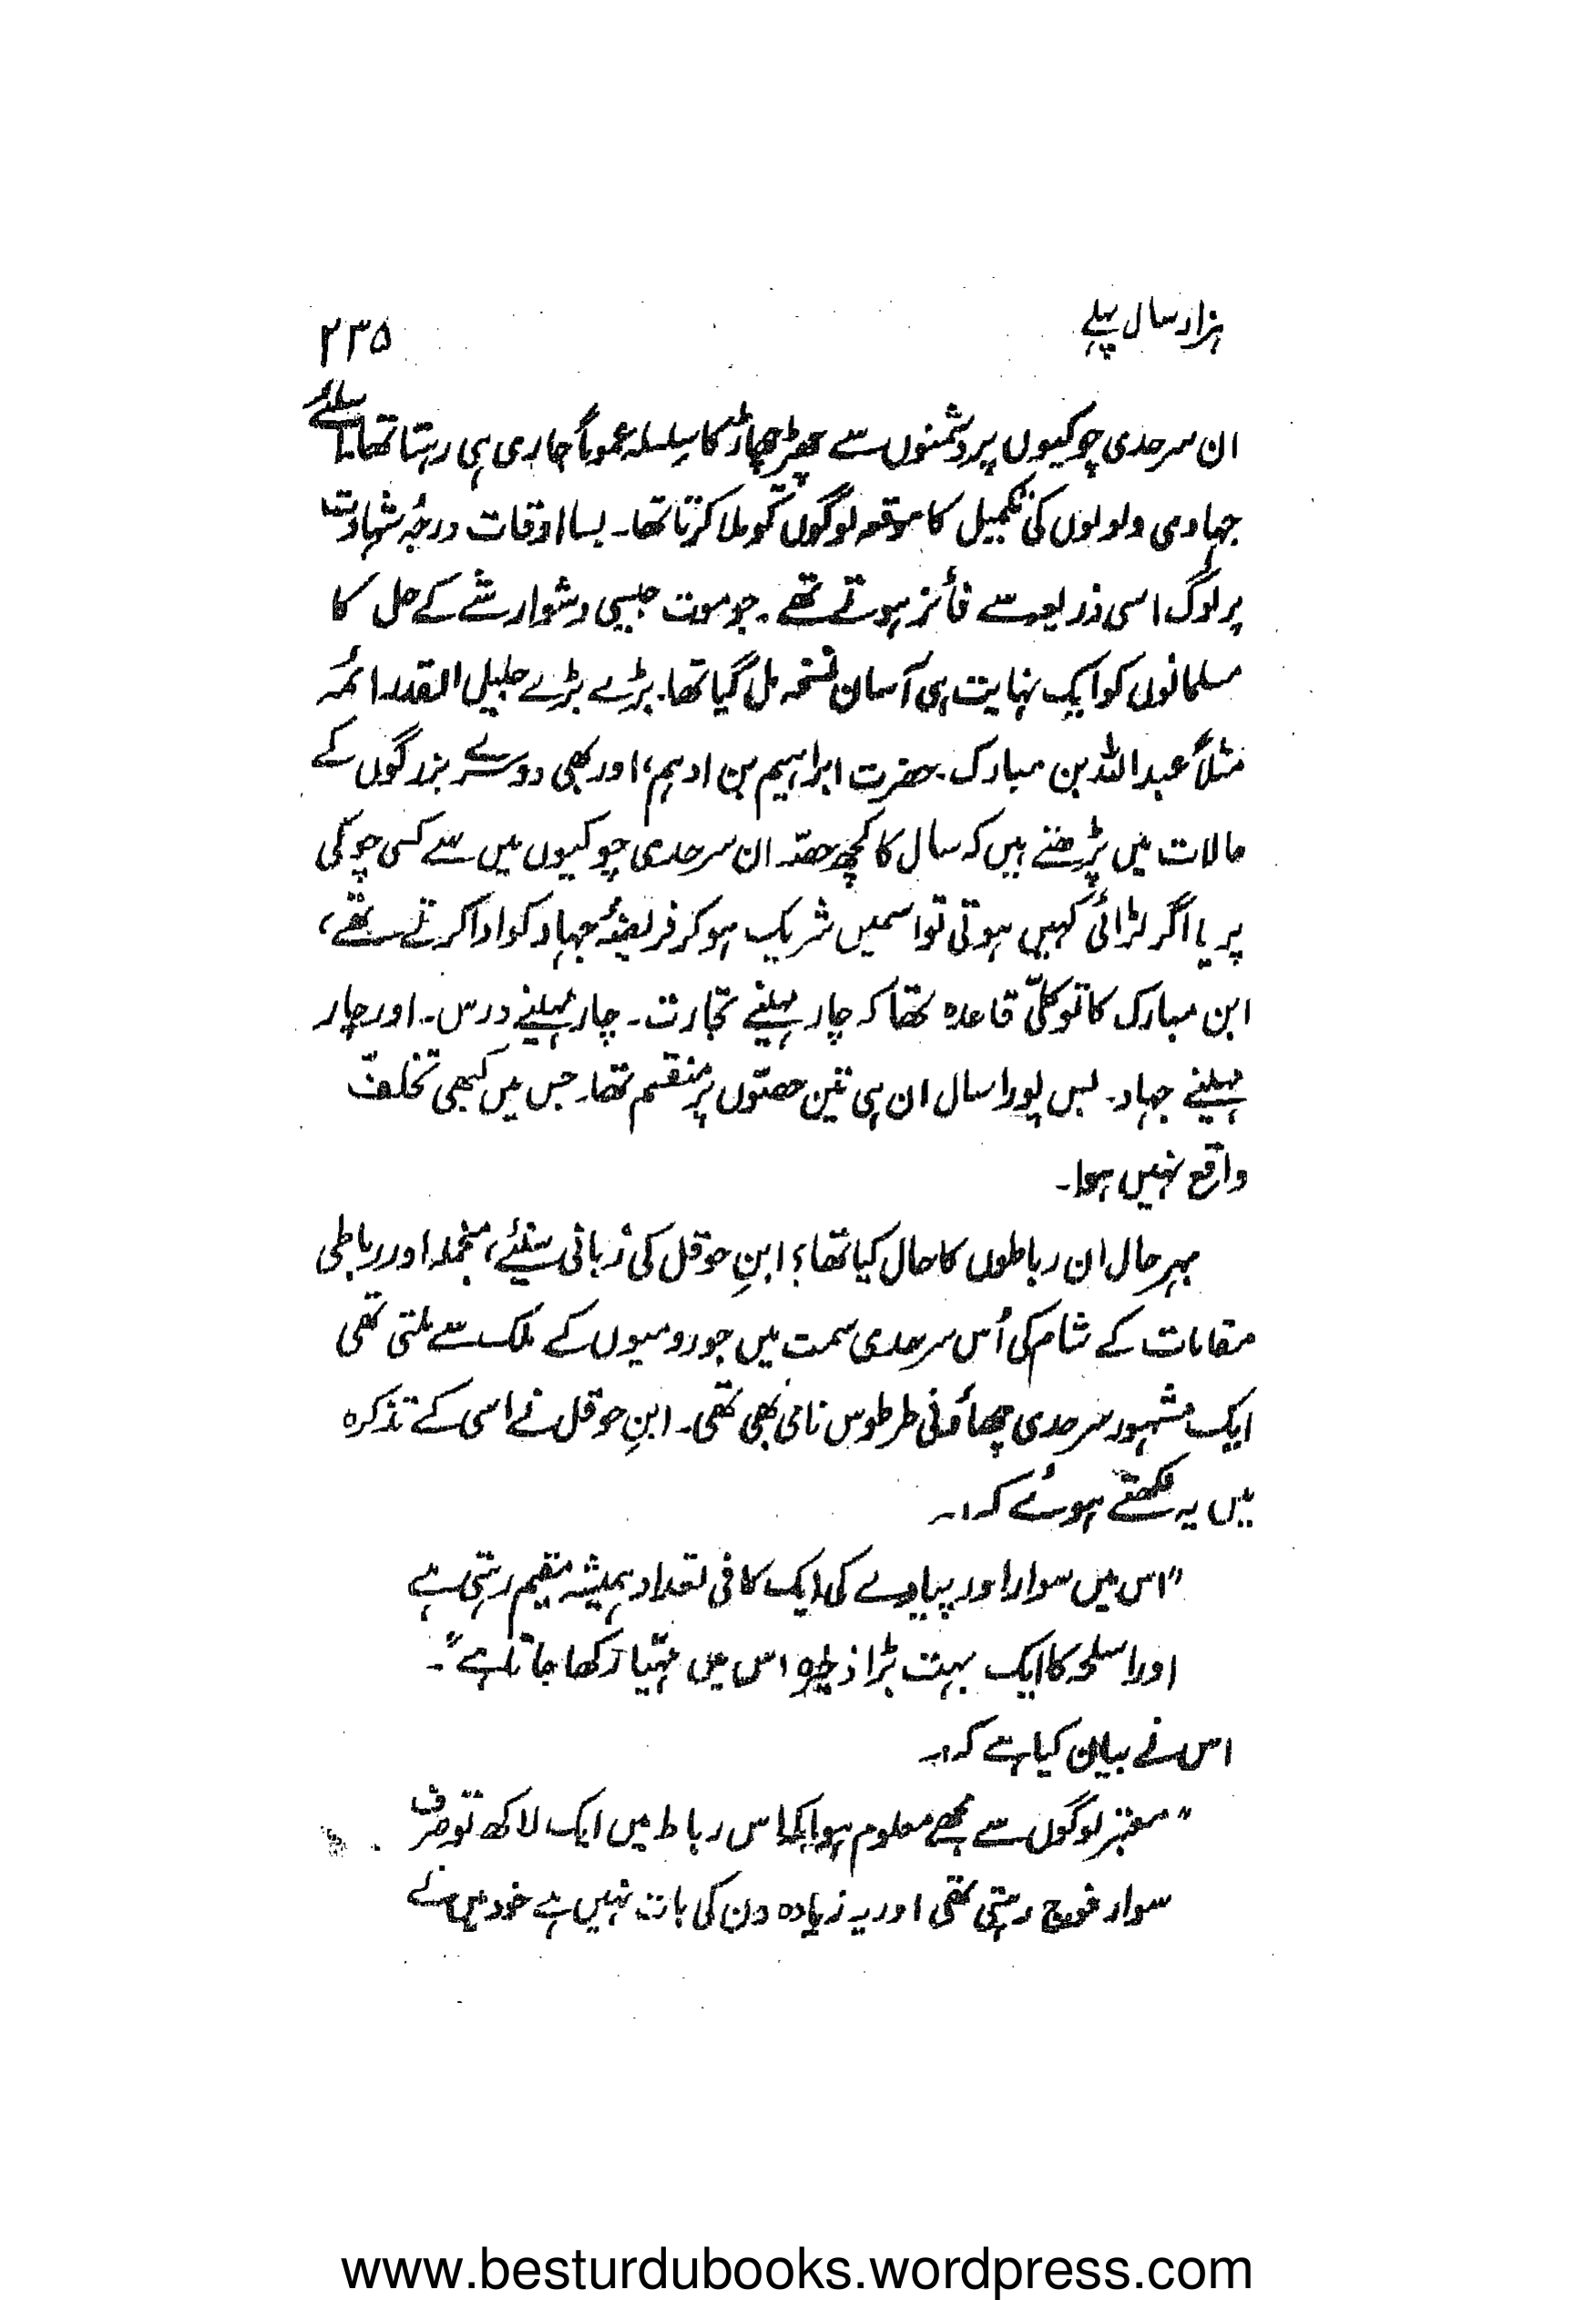 ہزار سال پہلے
۲۳۵
ان سرحدی چوکیوں پر دشمنوں سے چھیڑ چھاڑ کا سلسلہ عموماً جاری ہی رہتا تھا۔ اسلئے
جہادی ولولوں کی تکمیل کا موقعہ لوگوں کو ملا کرتا تھا۔ بسا اوقات درجۂ شہادت
پر لوگ اسی ذریعہ سے فائز ہوتے تھے۔ جو موت جیسی دشوار شے کے حل کا
مسلمانوں کو ایک نہایت ہی آسان نسخہ مل گیا تھا۔ بڑے بڑے جلیل القدر ائمہ
مثلاً عبداللہ بن مبارک۔ حضرت ابراہیم بن ادہم، اور بھی دوسرے بزرگوں کے
حالات میں پڑھتے ہیں کہ سال کا کچھ حصّہ ان سرحدی چوکیوں میں سے کسی چوکی
پر یا اگر لڑائی کہیں ہوتی تو اسمیں شریک ہو کر فریضۂ جہاد کو ادا کرتے تھے،
ابن مبارک کا تو کلّی قاعدہ تھا کہ چار مہینے تجارت۔ چار مہینے درس۔ اور چار
مہینے جہاد۔ بس پورا سال ان ہی تین حصّوں پر منقسم تھا۔ جس میں کبھی تخلّف
واقع نہیں ہوا۔
بہرحال ان رباطوں کا حال کیا تھا؟ ابنِ حوقل کی زبانی سنئیے، منجملہ اور رباطی
مقامات کے شام کی اُس سرحدی سمت میں جو رومیوں کے ملک سے ملتی تھی
ایک مشہور سرحدی چھاؤنی طرطوس نامی بھی تھی۔ ابنِ حوقل نے اسی کے تذکرہ
میں یہ لکھتے ہوئے کہ:۔
"اس میں سوار اور پیادے کی ایک کافی تعداد ہمیشہ مقیم رہتی ہے
اور اسلحہ کا ایک بہت بڑا ذخیرہ اس میں مہیّا رکھا جاتا ہے"۔
اس نے بیان کیا ہے کہ:۔
"معتبر لوگوں سے مجھے معلوم ہوا کہ اس رباط میں ایک لاکھ تو صرف
سوار فوج رہتی تھی اور یہ زیادہ دن کی بات نہیں ہے خود میں نے
www.besturdubooks.wordpress.com